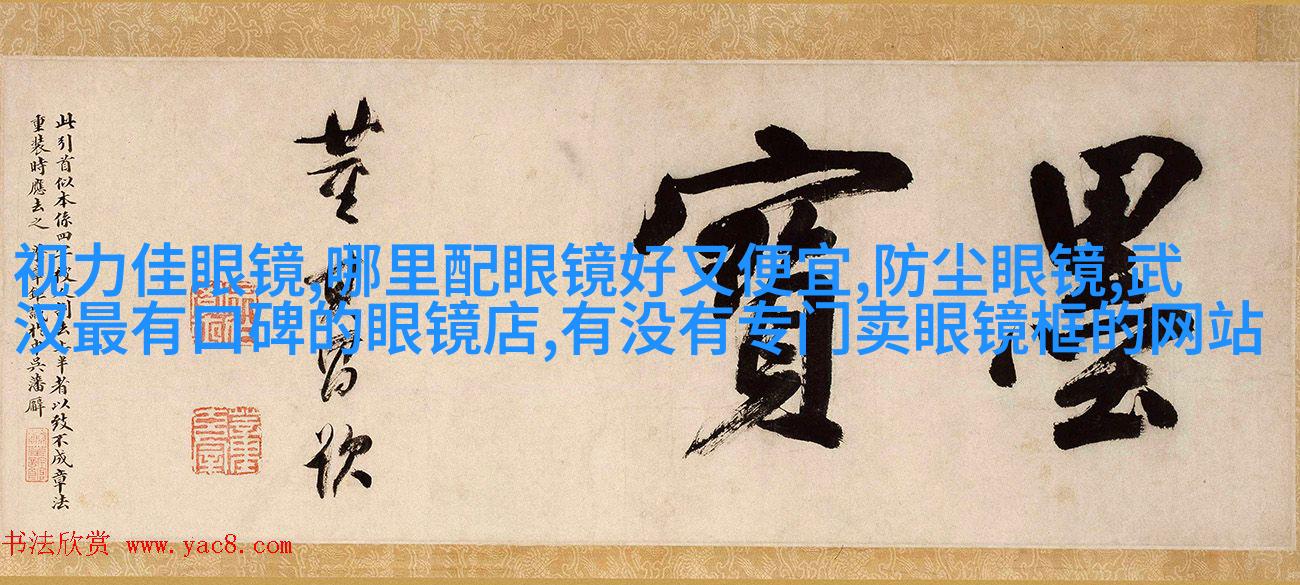 视力佳眼镜,哪里配眼镜好又便宜,防尘眼镜,武
汉最有口碑的眼镜店,有没有专门卖眼镜框的网站
墨寶
董其昌
此引首似本係四 半者以致不成章法
重裝時應去之
书法欣赏 www.yac8.com